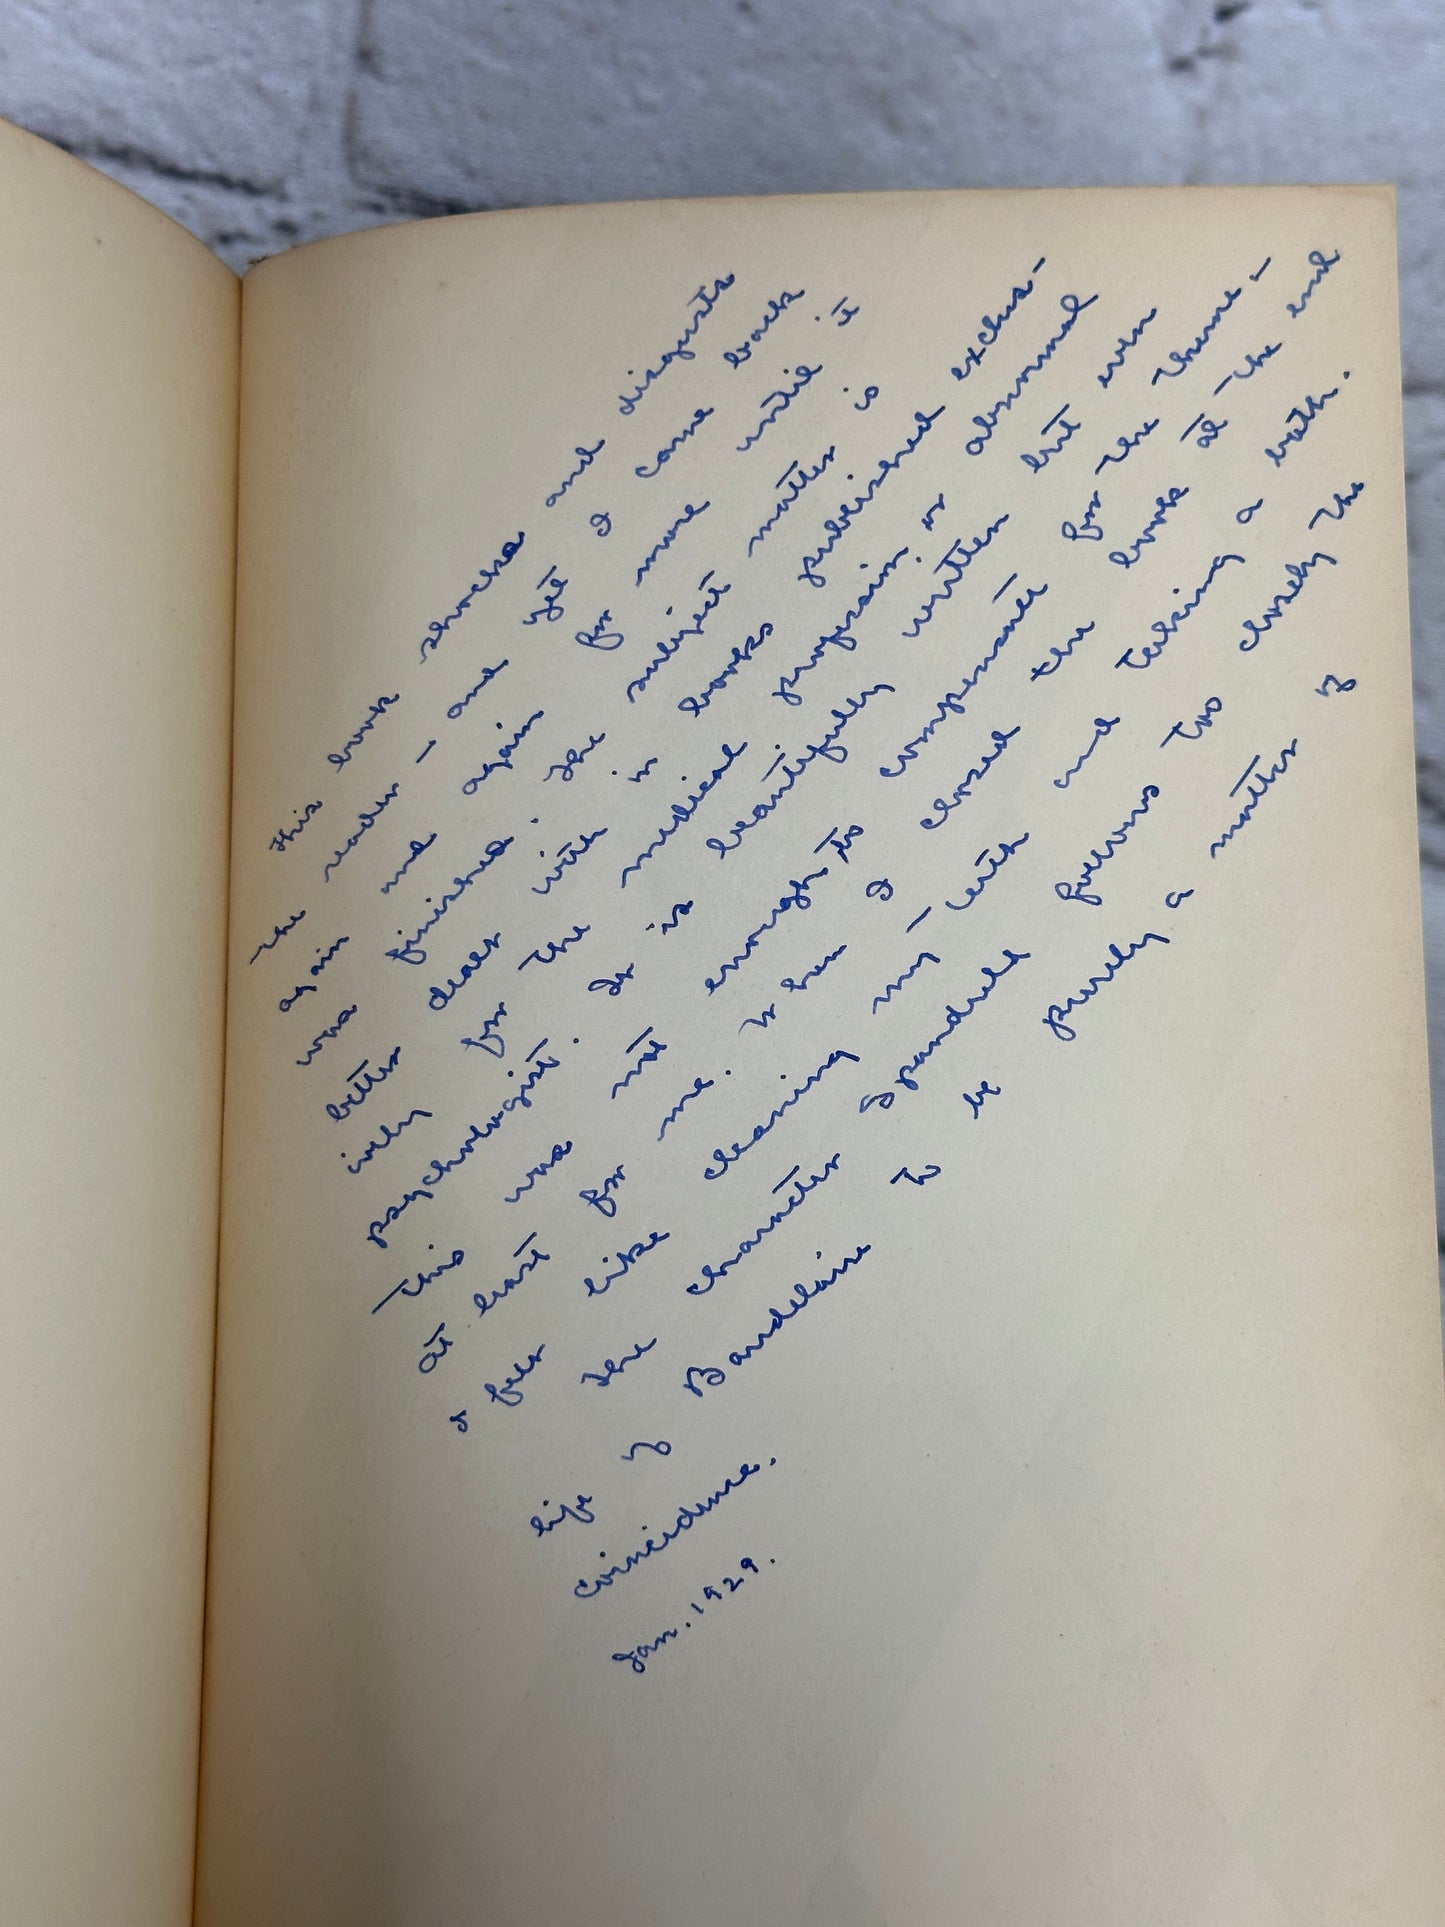 This book shocks and disgusts
the reader — and yet I came back
again and again for more until it
was finished. The subject matter is
better dealt with in books published exclus-
ively for the medical profession or abnormal
psychologist. It is beautifully written but even
this was not enough to compensate for the theme —
at least for me. When I closed the book at the end
I felt like cleaning my teeth and taking a bath.
The character Spandrell follows too closely the
life of Baudelaire to be purely a matter of
coincidence.
Jan. 1929.